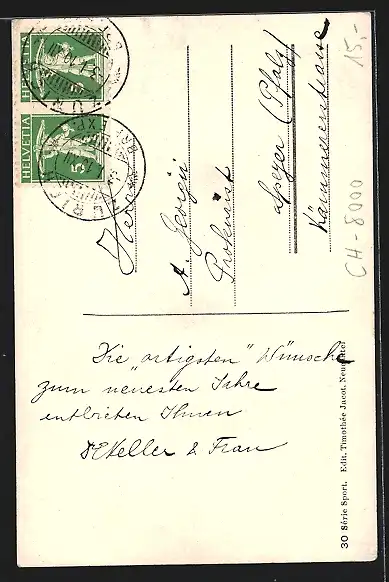 HELVETIA
5
HELVETIA
ZÜRICH
Herrn
A. Georgii
Prokurist
Speyer (Pfalz)
Kämmererstrasse
15,-
CH-8000
Die "artigsten" Wünsche
zum "neuesten Jahre
entbieten Ihnen
Keller & Frau
30 Série Sport. Edit. Timothée Jacot, Neuchâtel